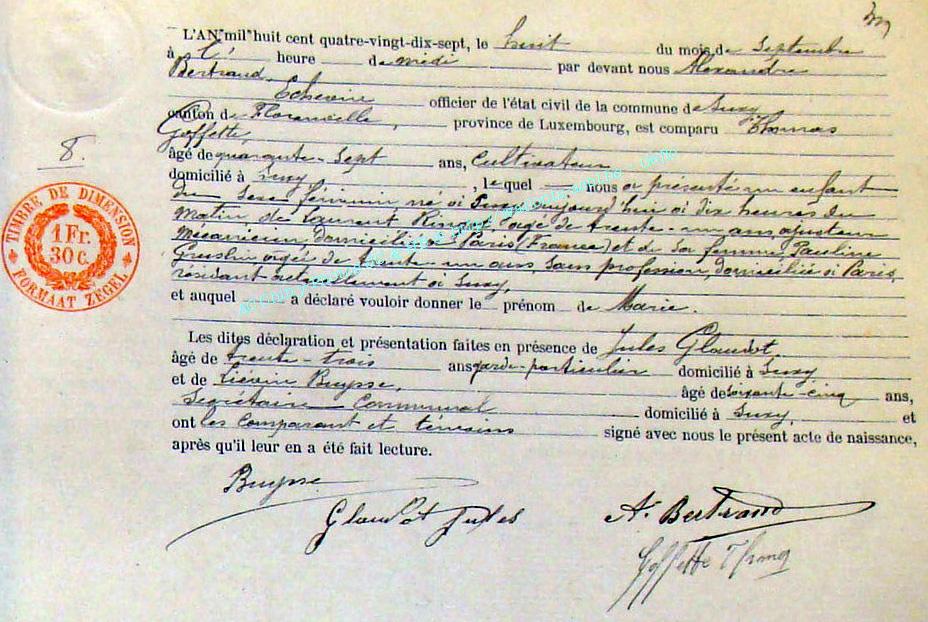 L'AN mil huit cent quatre-vingt-dix-sept, le huit du mois de Septembre
à l' heure de midi par devant nous Alexandre
Bertrand,
Echevin officier de l'état civil de la commune de Suxy,
canton de Florenville, province de Luxembourg, est comparu Thomas
Goffette,
âgé de quarante-sept ans, Cultivateur
domicilié à Suxy, lequel nous a présenté un enfant
du sexe féminin né à Suxy aujourd'hui à dix heures du
matin de Laurent âgé de trente-un ans ajusteur
mécanicien, domicilié à Paris (France) et de sa femme, Pauline
âgée de trente-un ans, sans profession, domiciliée à Paris,
résidant actuellement à Suxy,
et auquel a déclaré vouloir donner le prénom de Marie.
Les dites déclaration et présentation faites en présence de Jules Glaudot,
âgé de trente-trois ans garde-particulier domicilié à Suxy
et de Liévin Buysse, âgé de soixante-cinq ans,
Secrétaire Communal domicilié à Suxy, et
ont les Comparant et témoins signé avec nous le présent acte de naissance,
après qu'il leur en a été fait lecture.
8.
TIMBRE DE DIMENSION
1 Fr.
30 c.
FORMAAT ZEGEL
Buysse
Glaudot Jules
A. Bertrand
Goffette Thomas